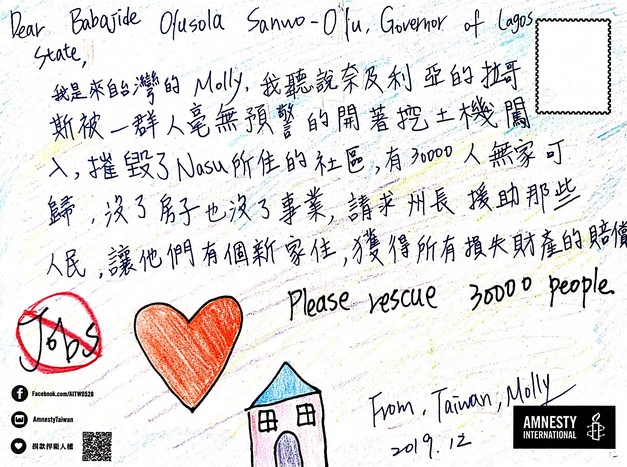 Dear Babajide Olusola Sanwo-Olu, Governor of Lagos
State,
我是來自台灣的 Molly, 我聽說奈及利亞的拉哥
斯被一群人毫無預警的開著挖土機闖
入, 摧毀了Nasu所住的社區, 有30000人無家可
歸, 沒了房子也沒了事業, 請求州長援助那些
人民, 讓他們有個新家住, 獲得所有損失財產的賠償
Please rescue 30000 people.
Jobs
Facebook.com/AITW0528
AmnestyTaiwan
捐款捍衛人權
From, Taiwan, Molly
2019.12
AMNESTY
INTERNATIONAL